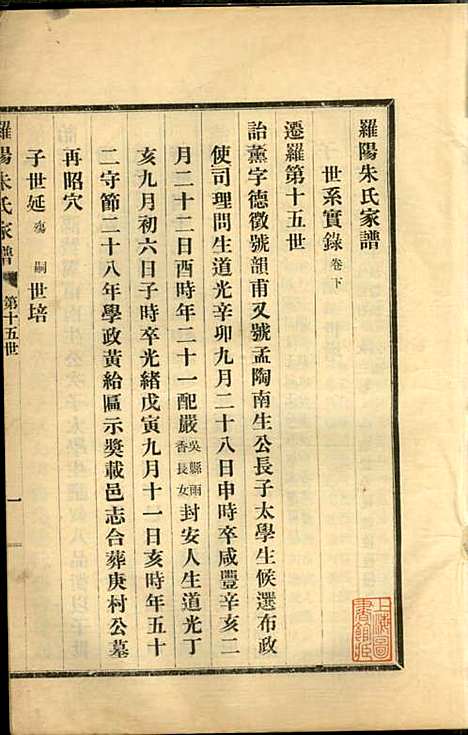 羅陽朱氏家譜
世系實錄卷下
遷羅第十五世
詒薰字德徵號韻甫又號孟陶南生公長子太學生候選布政
使司理問生道光辛卯九月二十八日申時卒咸豐辛亥二
月二十二日酉時年二十一配嚴吳縣雨香長女封安人生道光丁
亥九月初六日子時卒光緒戊寅九月十一日亥時年五十
二守節二十八年學政黃給區示獎載邑志合葬庚村公墓
再昭穴
子世延殤嗣世培
羅陽朱氏家譜
第十五世
一
上海圖書館藏